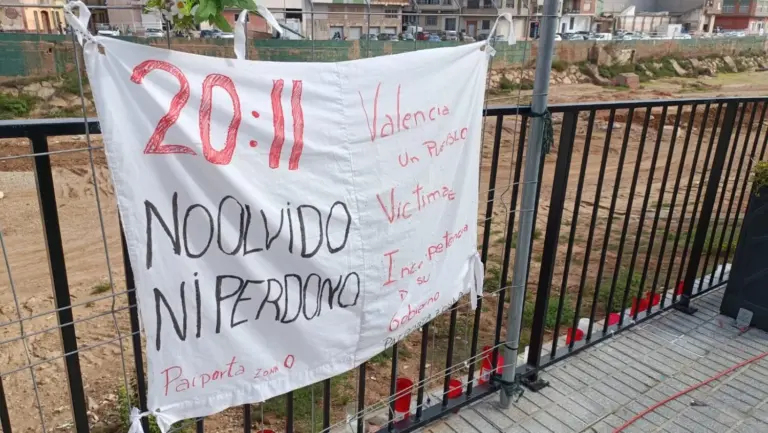 20:11
NO OLVIDO
NI PERDONO
Paiporta ZONA 0
Valencia
Un PUEBLO
Victima
D su
Gobierno